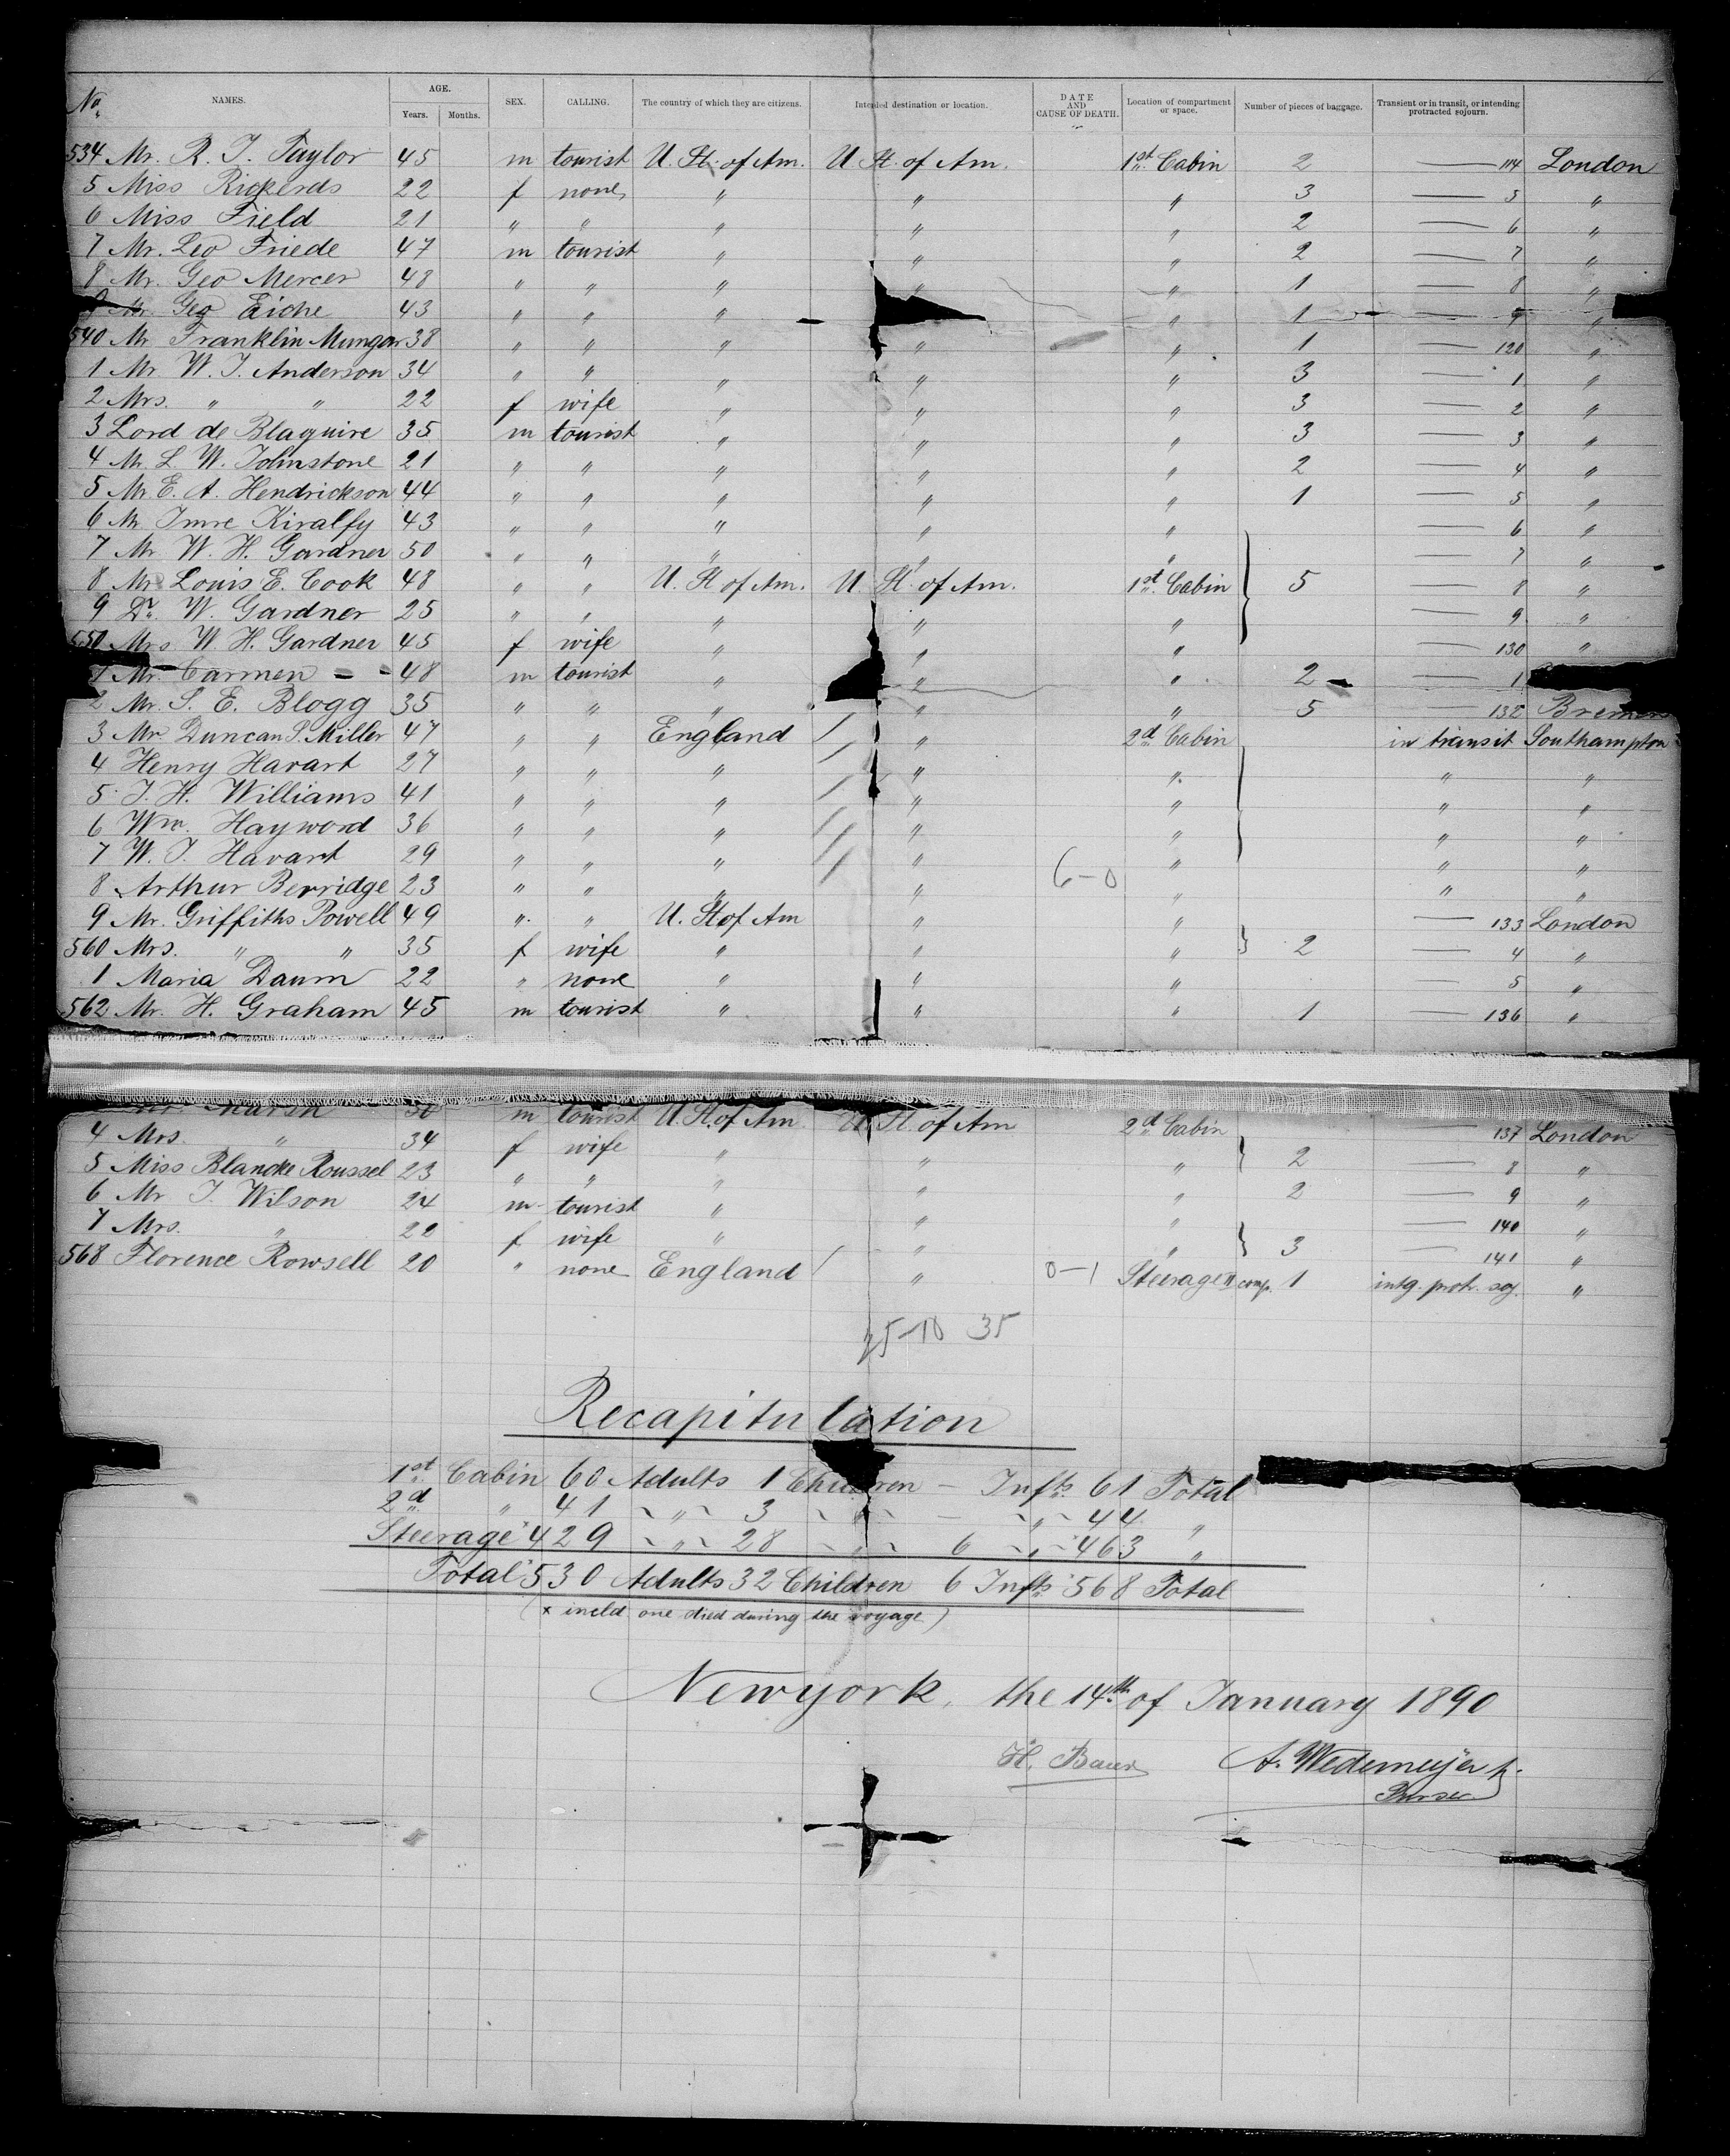 No. NAMES. AGE. Years. Months. SEX. CALLING. The country of which they are citizens. Intended destination or location. DATE AND CAUSE OF DEATH. Location of compartment or space. Number of pieces of baggage. Transient or in transit, or intending protracted sojourn.
534 Mr. R. J. Taylor 45 m tourist U. St. of Am. U. St. of Am. 1st Cabin 2 — 114 London
5 Miss Rickerds 22 f none " " " 3 — 5 "
6 Miss Field 21 " " " " " 2 — 6 "
7 Mr. Leo Friede 47 m tourist " " " 2 — 7 "
8 Mr. Geo Mercer 48 " " " " " 1 — 8 "
9 Mr. Geo Eiche 43 " " " " 1 — 9 "
540 Mr. Franklin Mungar 38 " " " " " 1 — 120 "
1 Mr. W. J. Anderson 34 " " " " " 3 — 1 "
2 Mrs. " " 22 f wife " " " 3 — 2 "
3 Lord de Blaquire 35 m tourist " " " 3 — 3 "
4 Mr. L. W. Johnstone 21 " " " " " 2 — 4 "
5 Mr. E. A. Hendrickson 44 " " " " " 1 — 5 "
6 Mr. Imre Kiralfy 43 " " " " " — 6 "
7 Mr. W. H. Gardner 50 " " " " " — 7 "
8 Mr. Louis E. Cook 48 " " U. St of Am. U. St. of Am. 1st Cabin 5 — 8 "
9 Dr. W. Gardner 25 " " " " " — 9 "
550 Mrs W. H. Gardner 45 f wife " " " — 130 "
1 Mr. Carmen 48 m tourist " " " 2 — 1
2 Mr. S. E. Blogg 35 " " " " " 5 — 132 Bremen
3 Mr. Duncan S. Miller 47 " " England / " 2d Cabin in transit Southampton
4 Henry Havart 27 " " " / " " " "
5 J. H. Williams 41 " " " / " " " "
6 Wm. Hayword 36 " " " / " " " "
7 W. J. Havart 29 " " " / " " " "
8 Arthur Berridge 23 " " " / " 6-0 " " "
9 Mr. Griffiths Powell 49 " " U. St of Am " " — 133 London
560 Mrs. " " 35 f wife " " " 2 — 4 "
1 Maria Daum 22 " none " " " — 5 "
562 Mr. H. Graham 45 m tourist " " " 1 — 136 "
Mr Marsh m tourist U. St. of Am U. St. of Am 2d Cabin — 137 London
4 Mrs. " 34 f wife " " " 2 — 8 "
5 Miss Blancke Roussel 23 " " " " " 2 — 9 "
6 Mr J. Wilson 24 m tourist " " " — 140 "
7 Mrs. " 22 f wife " " " 3 — 141 "
568 Florence Rowsell 20 " none England / " 0-1 Steerage II comp. 1 intg. prot. soj. "
25-10 35
Recapitulation
1st Cabin 60 Adults 1 Children — Infts. 61 Total
2d " 41 " 3 " — " 44 "
Steerage 429 " 28 " 6 " 463 "
Total 530 Adults 32 Children 6 Infts 568 Total
(x incld one died during the voyage)
Newyork, the 14th of January 1890
H. Baur A. Wedemeyer
Purser